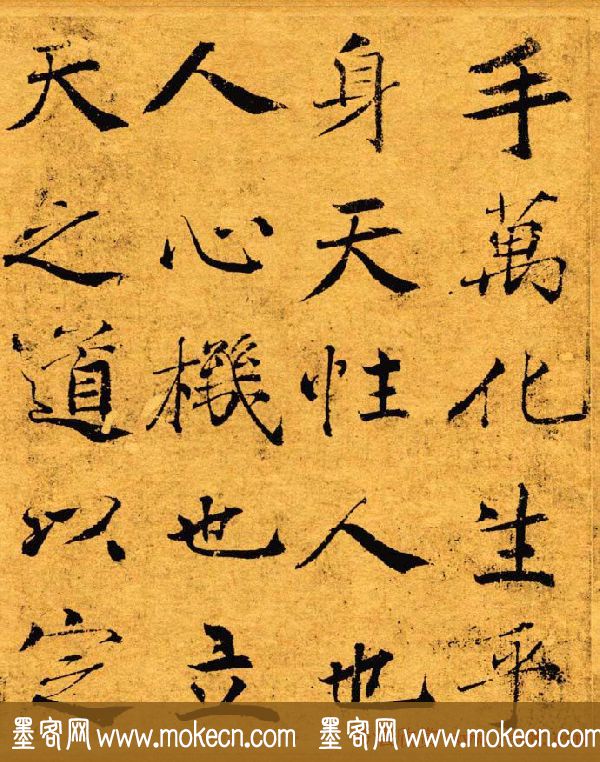 手萬化生乎
身天性人也
人心機也立
天之道以定
墨客网 www.mokecn.com 墨客网 www.mokecn.com